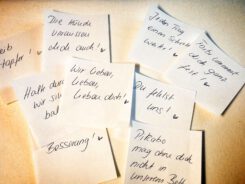 tapfer!
Die Hunde
vermissen
dich auch!
Jeden Tag
einen Schritt
weiter!
dich ganz
fest!
Halt
wir
bal
Wir lieben,
lieben,
lieben dich!
Du fehlst
uns!
Besserung!
mag ohne dich
nicht in
unserem Bett